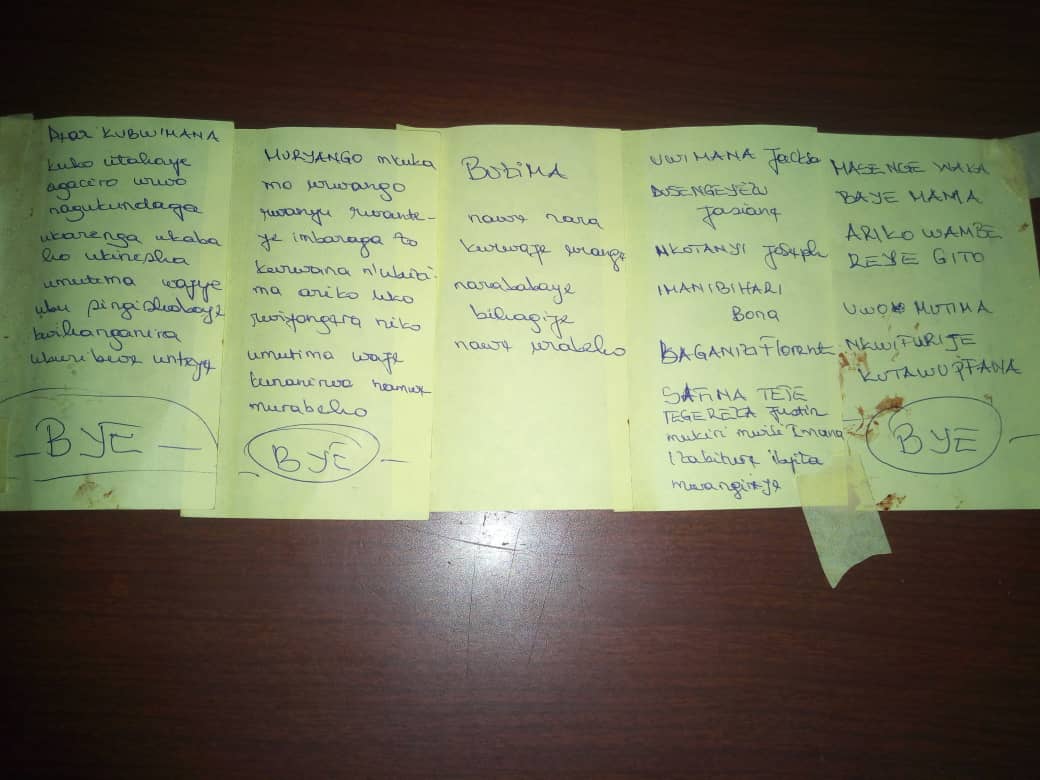 Dear KUBWIMANA
kuko utahaye
agaciro urwo
nagukundaga
ukarenga ukaba
ko ukinesha
umutima wajye
ubu singishoboye
kwihanganira
uburibwe unteye
BYE
MURYANGO mvuka
mo urwango
rwanyu rwante-
ye imbaraga zo
kurwana n'ubuzi-
ma ariko uko
rwiyongera niko
umutima waje
kunanirwa namwe
murabeho
BYE
BUZIMA
nawe nara
kurwaje uranga
narababaye
bihagije
nawe urabeho
UWIMANA Jackso
DUSENGEYEZU
Josiane
NKOTANYI Joseph
IMANIBIHARI
Bona
BAGANIZI Florent
SAFINA TETE
TEGEREZA Justin
mukiri mwisi Imana
Izabiture ibyita
mwangiriye
MASENGE WAKA
BAYE MAMA
ARIKO WAMBE
REYE GITO
UWO MUTIMA
NKWIFURIJE
KUTAWUPFANA
BYE